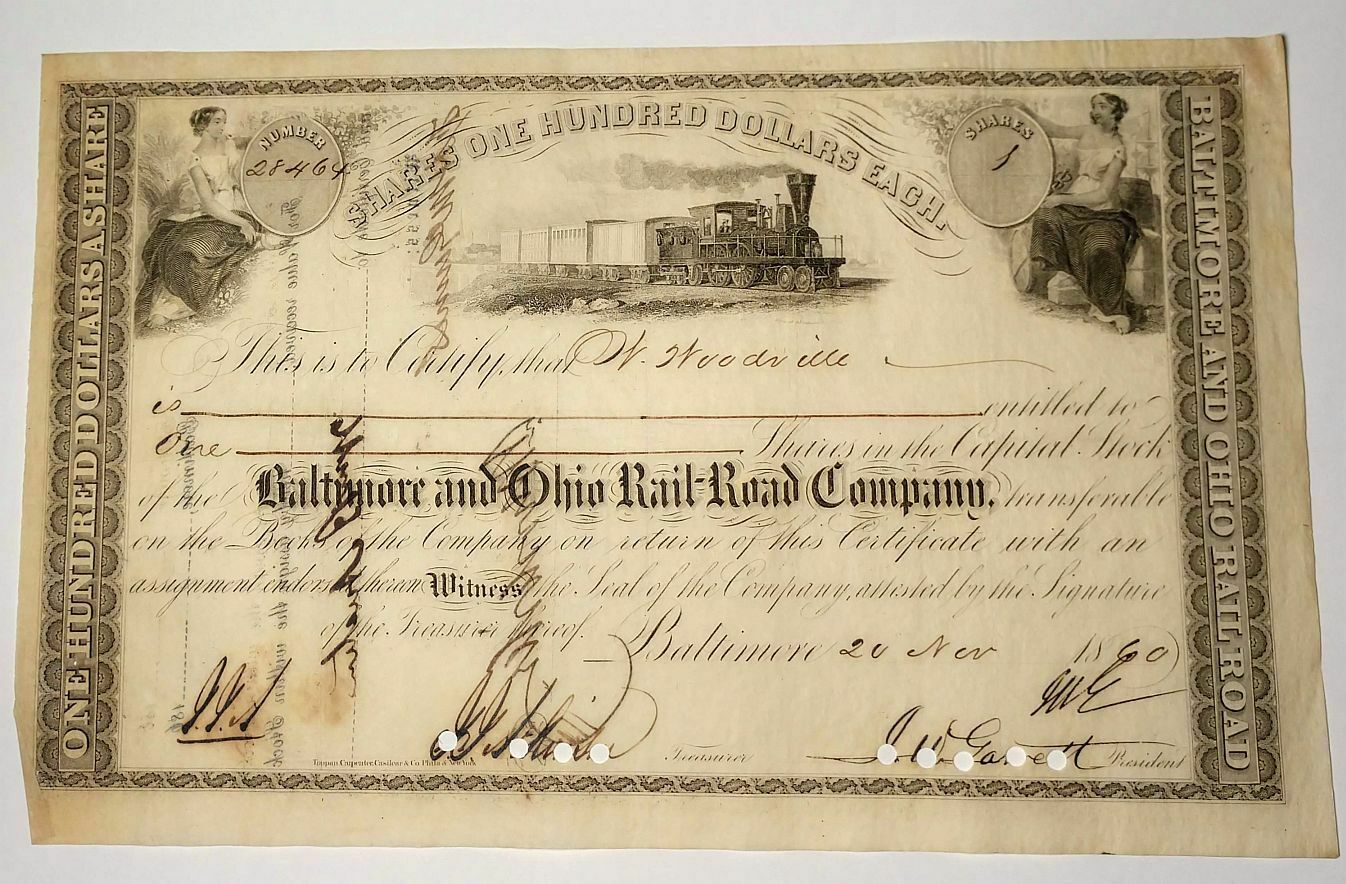 SHARES ONE HUNDRED DOLLARS EACH.
NUMBER
28464
SHARES
1
ONE HUNDRED DOLLARS A SHARE
BALTIMORE AND OHIO RAIL ROAD
This is to Certify, that W. Woodville
is entitled to
One Shares in the Capital Stock
of the Baltimore and Ohio Rail-Road Company, transferable
on the Books of the Company on return of this Certificate with an
assignment endorsed thereon Witness the Seal of the Company, attested by the Signature
of the Treasurer thereof.
Baltimore 20 Nov 1860
Treasurer
J. W. Garrett President
Toppan, Carpenter, Casilear & Co. Phila. & New York